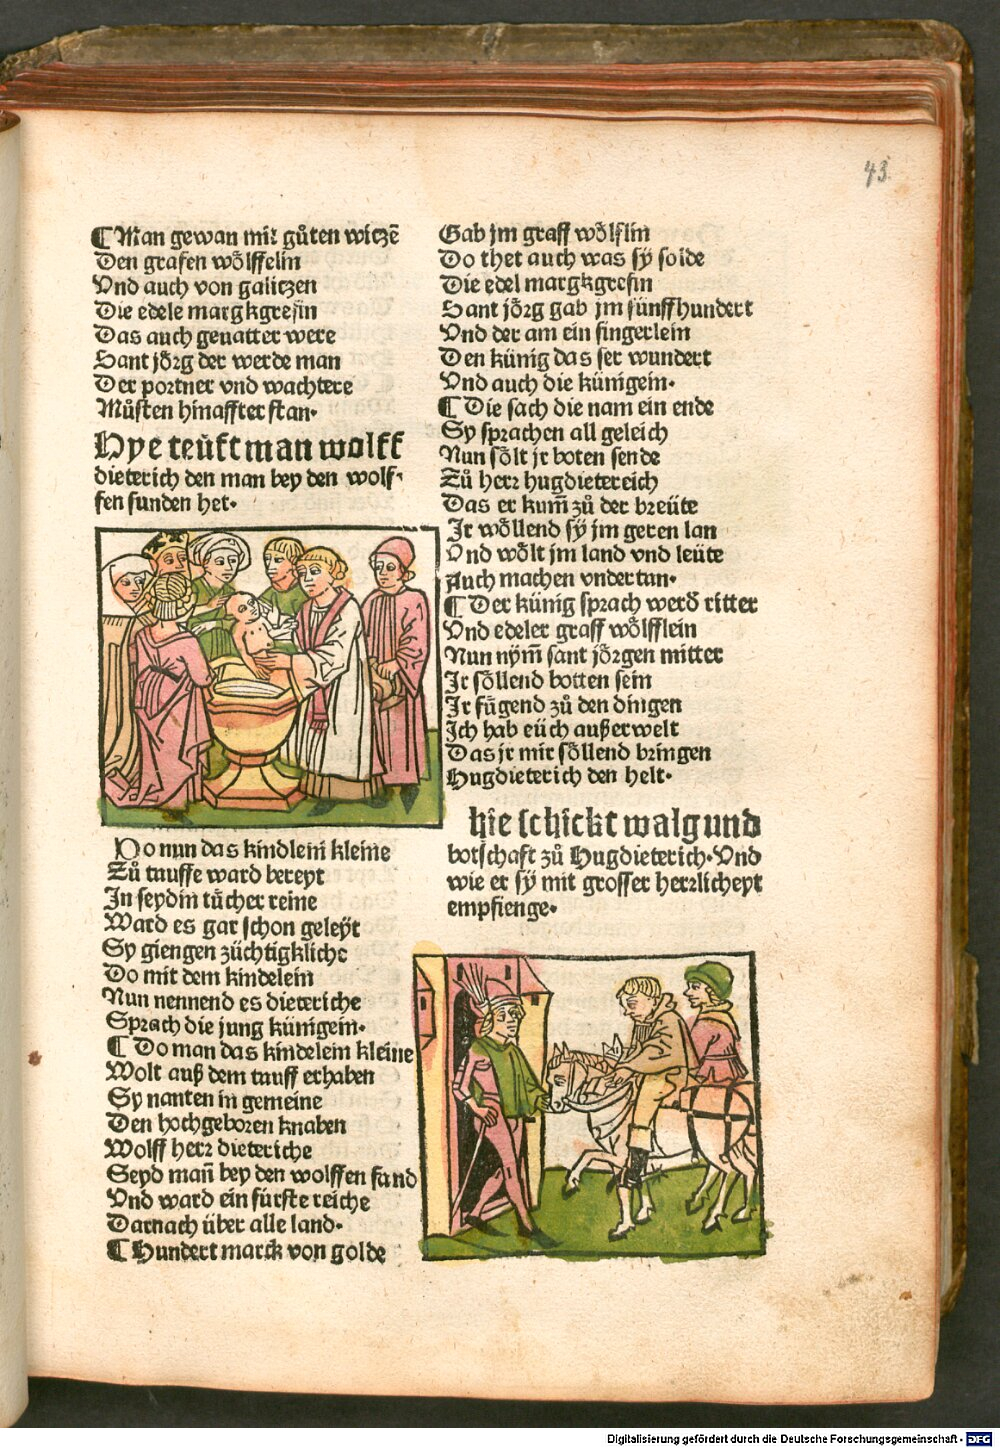 43
¶ Man gewan mir gůten witzẽ
Den grafen wölffelin
Vnd auch von galitzen
Die edele margkgrefin
Das auch geuatter were
Sant jörg der werde man
Der portner vnd wachtere
Můsten hinaffter stan.
Hye teüft man wolff
dieterich den man bey den wolf-
fen funden het.
Do nun das kindlein kleine
Zů tauffe ward bereyt
In seydin tücher reine
Ward es gar schon geleÿt
Sy giengen züchtigkliche
Do mit dem kindelein
Nun nennend es dieteriche
Sprach die jung künigein.
¶ Do man das kindelein kleine
Wolt auß dem tauff erhaben
Sy nanten in gemeine
Den hochgeboren knaben
Wolff herr dieteriche
Seyd mañ bey den wolffen fand
Vnd ward ein fürste reiche
Darnach über alle land.
¶ Hundert marck von golde
Gab jm graff wölflin
Do thet auch was sÿ solde
Die edel margkgrefin
Sant jörg gab jm fünffhundert
Vnd der am ein fingerlein
Den künig das ser wundert
Vnd auch die künigein.
¶ Die sach die nam ein ende
Sy sprachen all geleich
Nun sölt jr boten sende
Zů herr hugdietereich
Das er kum̃ zů der breüte
Ir wöllend sÿ jm geren lan
Vnd wölt jm land vnd leüte
Auch machen vndertan.
¶ Der künig sprach werd ritter
Vnd edeler graff wölfflein
Nun nÿm̃ sant jörgen mitter
Ir söllend botten sein
Ir fügend zů den dingen
Ich hab eüch außerwelt
Das jr mir söllend bringen
Hugdieterich den helt.
hie schickt walgund
botschaft zů Hugdieterich. Vnd
wie er sÿ mit grosser herrlicheyt
empfienge.
Digitalisierung gefördert durch die Deutsche Forschungsgemeinschaft - DFG